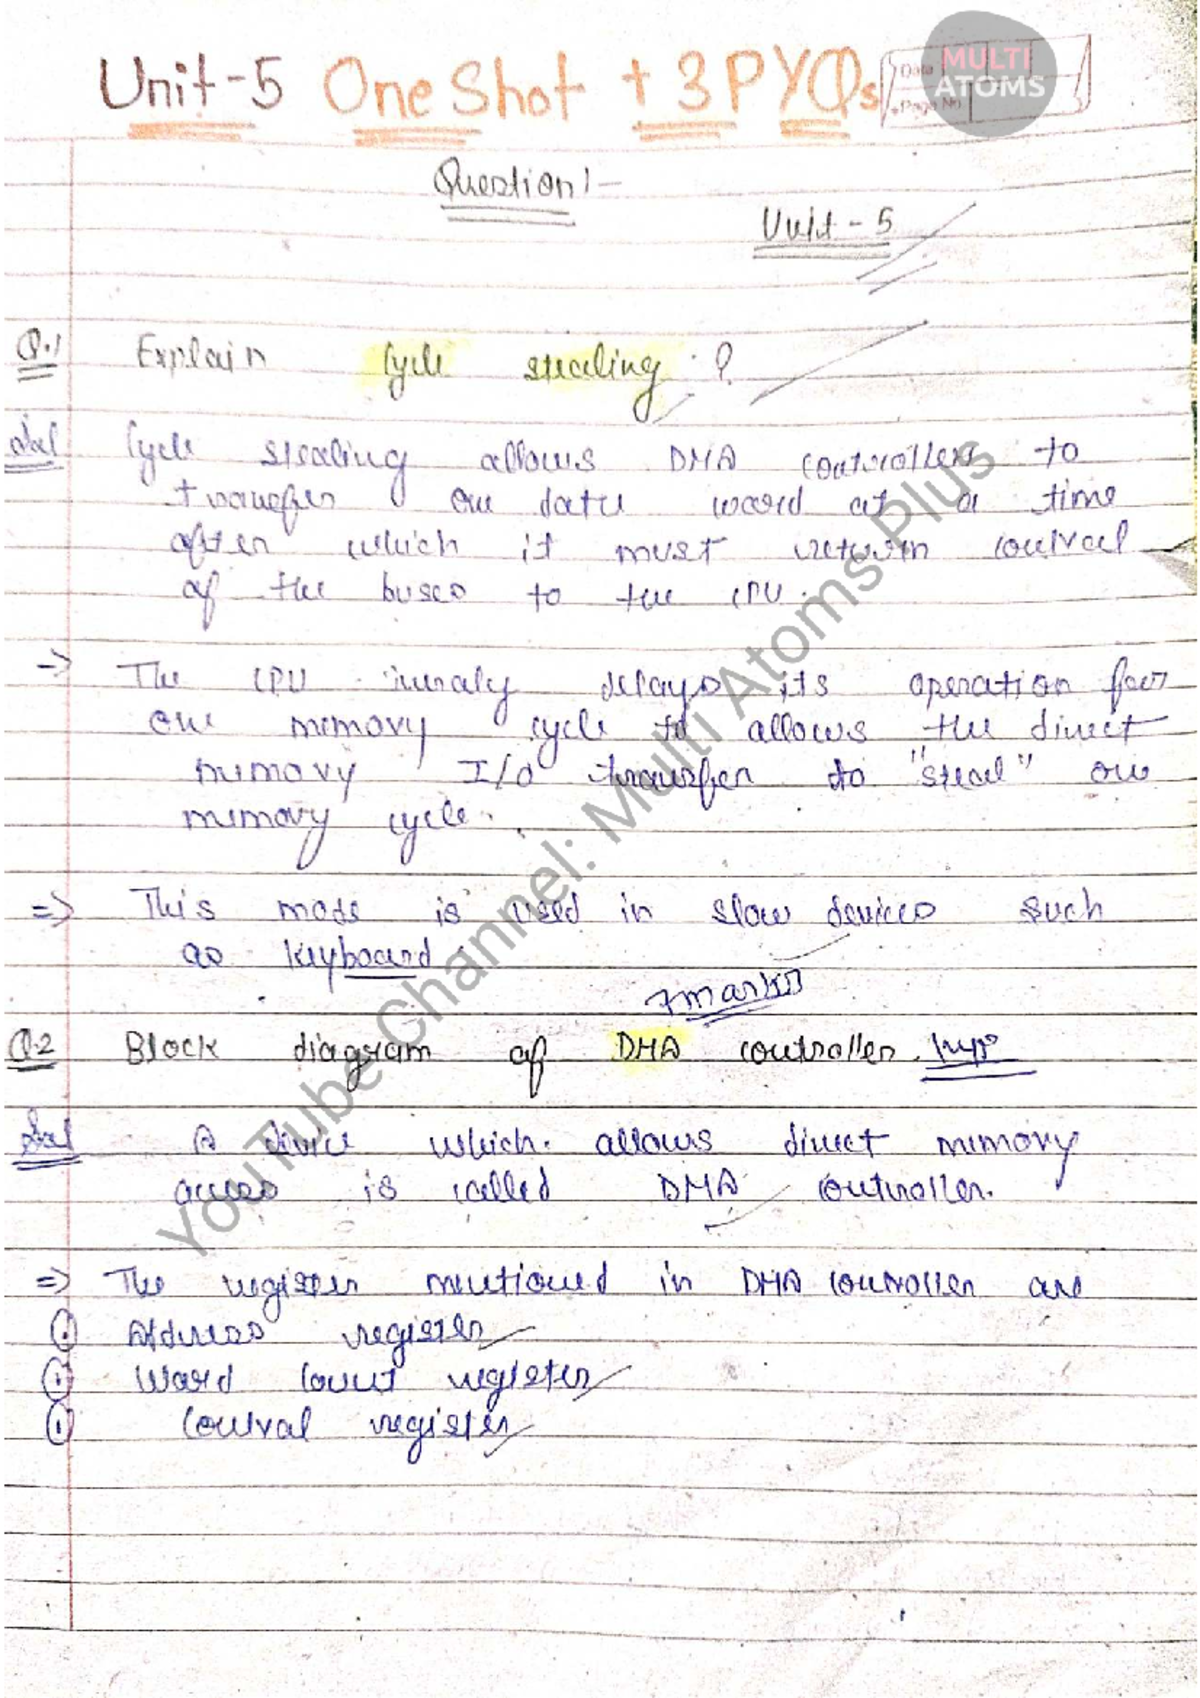 Unit-5 One Shot + 3 PYQs
MULTI
ATOMS
Date
Page No
Question:-
Unit - 5
Q.1 Explain Cycle stealing ?
Sol Cycle stealing allows DMA controllers to
transfer one data word at a time
after which it must return control
of the buses to the CPU.
=> The CPU merely delays its operation for
one memory cycle to allows the direct
memory I/O transfer to "steal" one
memory cycle.
=> This mode is used in slow devices such
as keyboard.
7marks
Q.2 Block diagram of DMA controller. Imp
Sol A device which allows direct memory
access is called DMA controller.
=> The register mentioned in DMA controller are
Address register
Word count register
Control register
YouTube Channel: Multi Atoms Plus